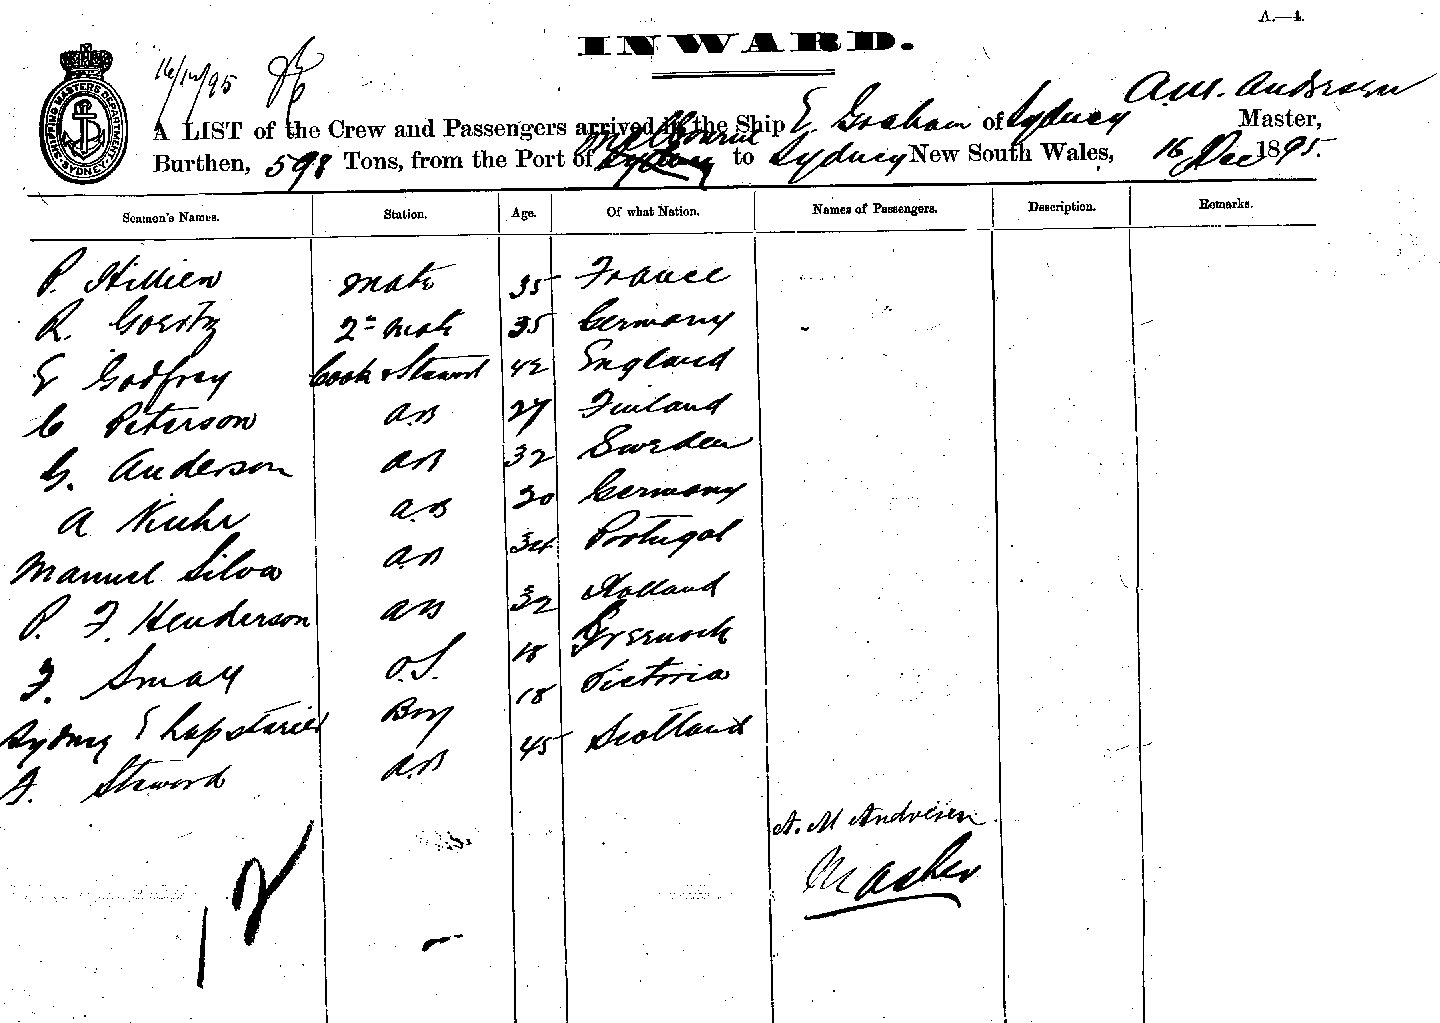 A.—4.
INWARD.
SHIPPING MASTERS DEPARTMENT SYDNEY
16/12/95
A. M. Andresen
A LIST of the Crew and Passengers arrived in the Ship E. Graham of Sydney Master,
Melbourne
Burthen, 598 Tons, from the Port of Sydney to Sydney New South Wales, 16 Dec 1895.
Seamen's Names. Station. Age. Of what Nation. Names of Passengers. Description. Remarks.
P. Hillien Mate 35 France
R. Goeritz 2nd Mate 35 Germany
E Godfrey Cook & Steward 42 England
C Peterson AB 27 Finland
G. Anderson AB 32 Sweden
A Kuhr AB 30 Germany
Manuel Silva AB 34 Portugal
P. F. Henderson AB 32 Holland
F. Small O.S. 18 Greenock
Sydney E Boy 18 Victoria
A. Steward AB 45 Scotland
A. M Andresen
Master
12